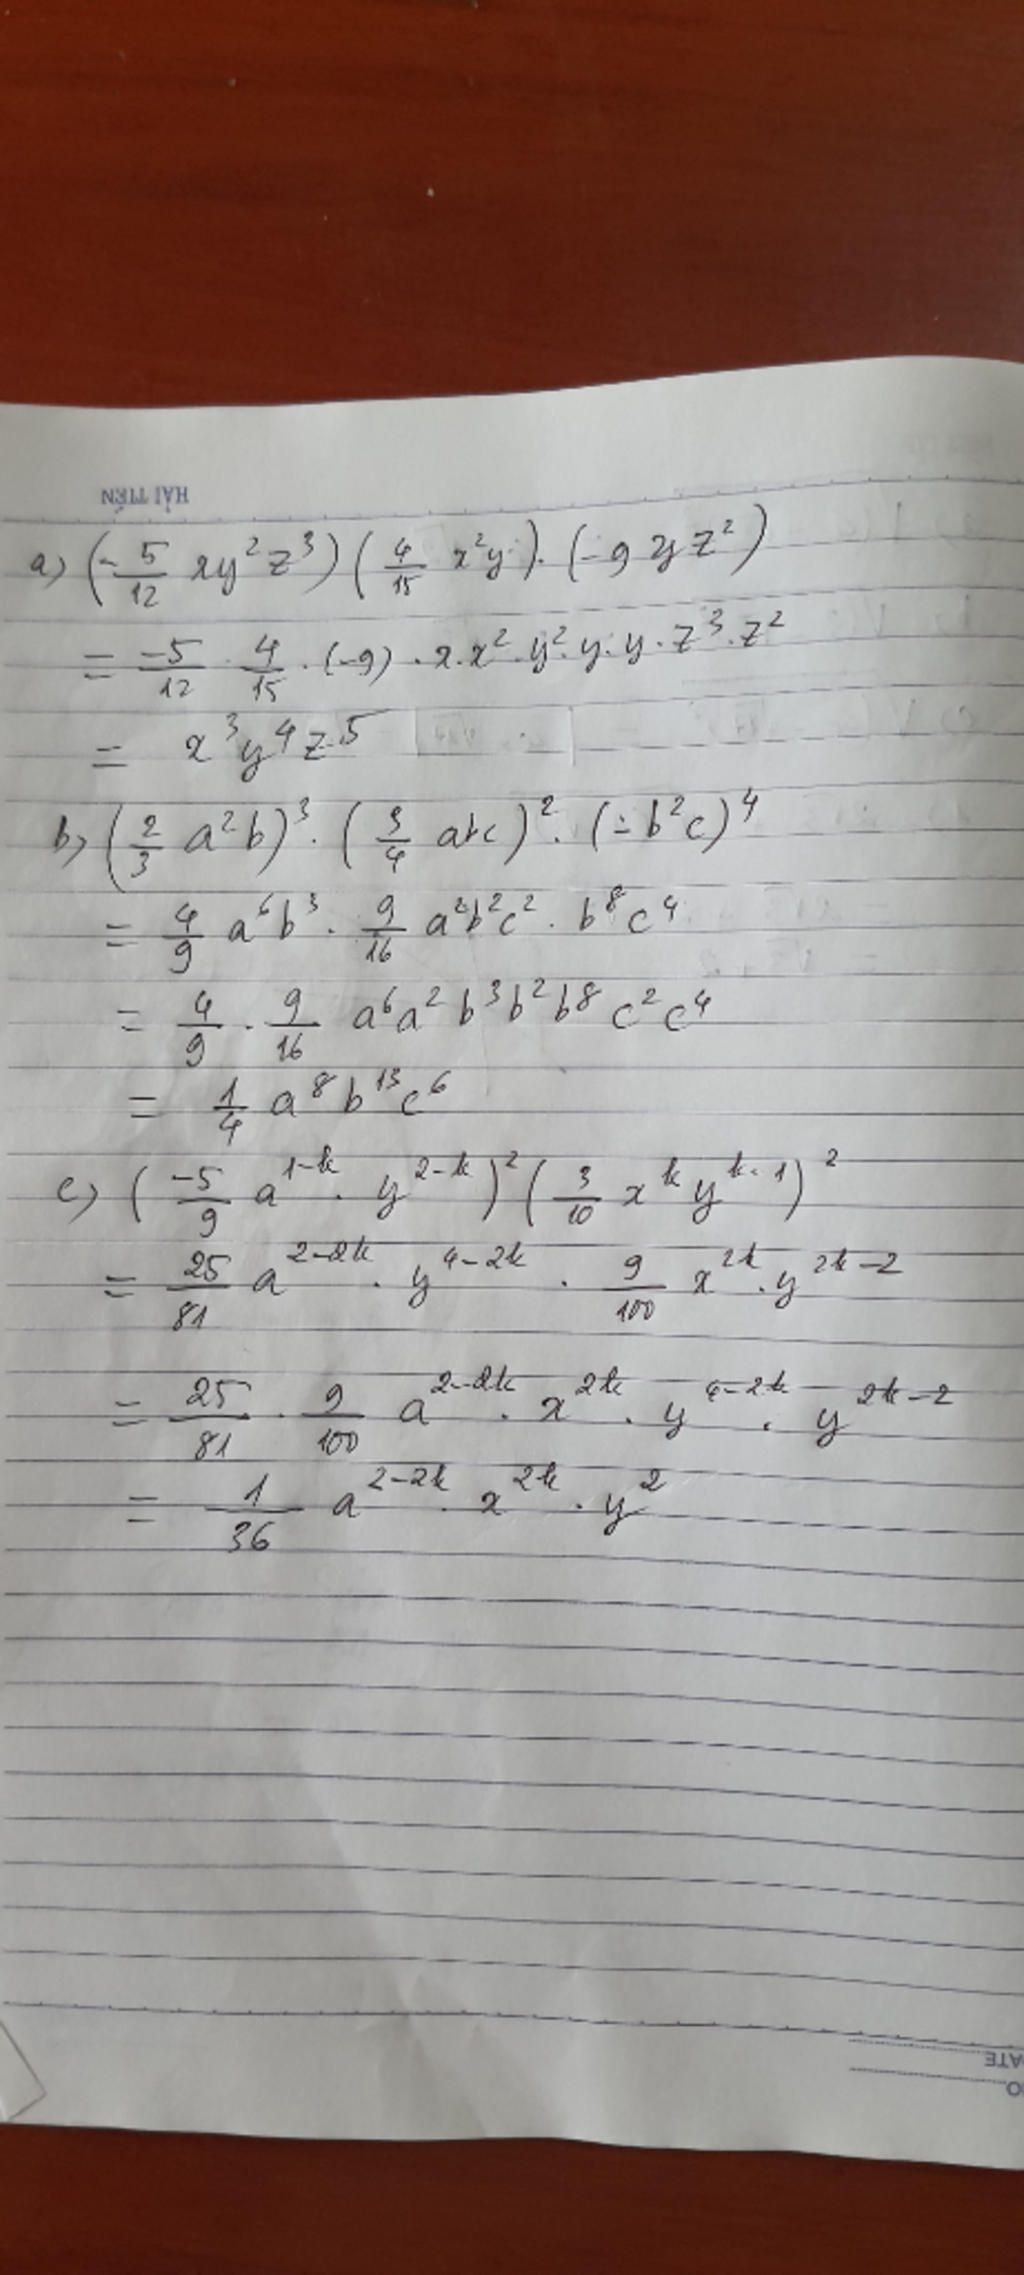 HẢI TIẾN
a) (-5/12 xy²z³) (4/15 x²y) . (-9 yz²)
= -5/12 . 4/15 . (-9) . x.x².y².y.y.z³.z²
= x³y⁴z⁵
b) (2/3 a²b)³ . (3/4 abc)² . (-b²c)⁴
= 4/9 a⁶b³ . 9/16 a²b²c² . b⁸c⁴
= 4/9 . 9/16 a⁶a²b³b²b⁸c²c⁴
= 1/4 a⁸b¹³c⁶
c) (-5/9 a^(1-k) . y^(2-k))² (3/10 x^k y^(k-1))²
= 25/81 a^(2-2k) . y^(4-2k) . 9/100 x^(2k) . y^(2k-2)
= 25/81 . 9/100 a^(2-2k) . x^(2k) . y^(4-2k) . y^(2k-2)
= 1/36 a^(2-2k) . x^(2k) . y²